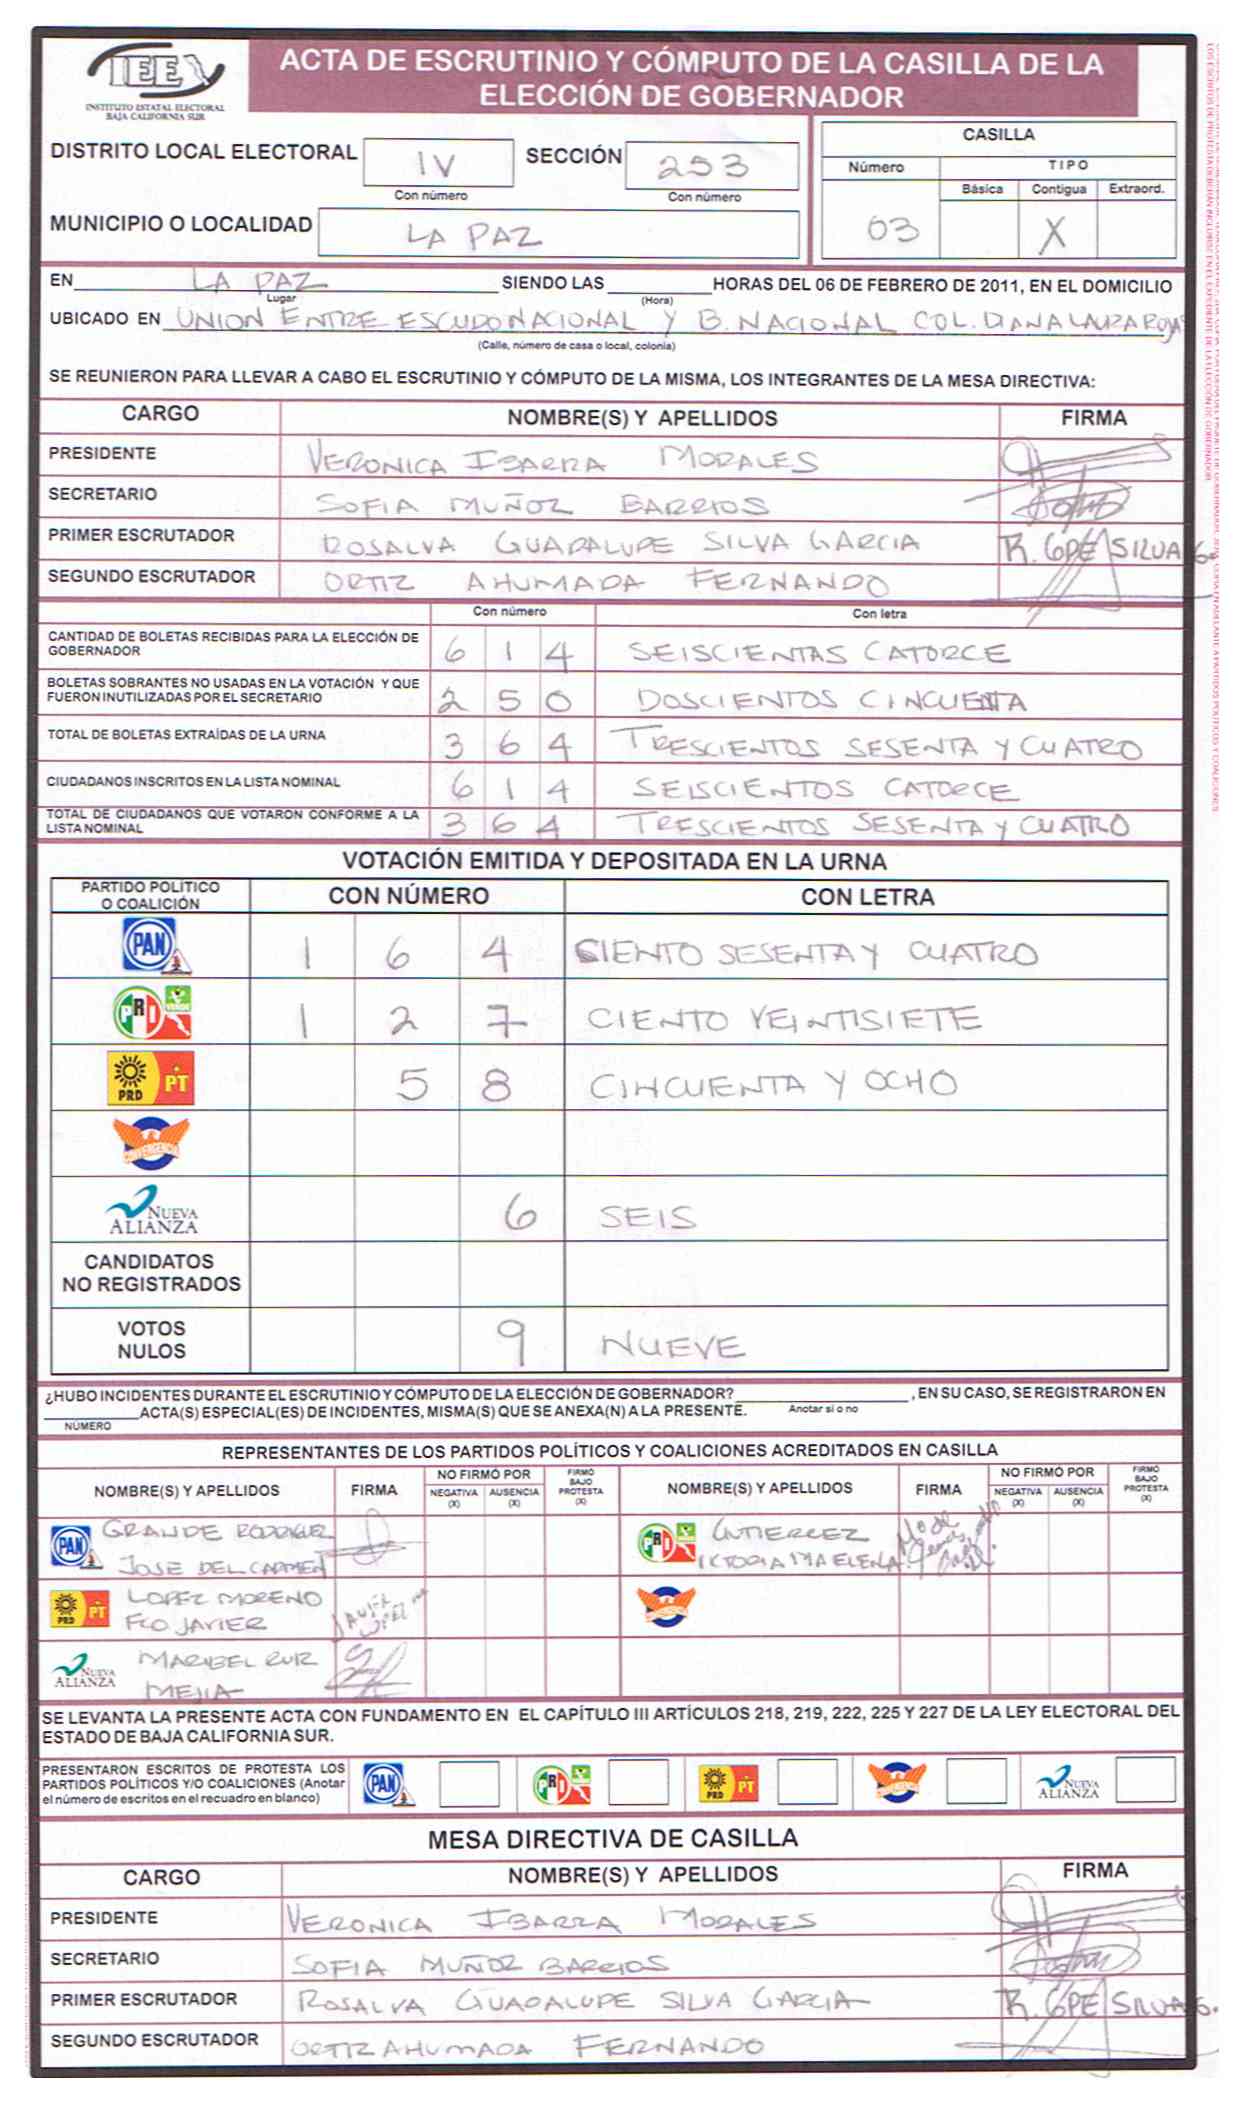 IEE
INSTITUTO ESTATAL ELECTORAL
BAJA CALIFORNIA SUR
ACTA DE ESCRUTINIO Y CÓMPUTO DE LA CASILLA DE LA
ELECCIÓN DE GOBERNADOR
DISTRITO LOCAL ELECTORAL IV SECCIÓN 253
Con número Con número
MUNICIPIO O LOCALIDAD LA PAZ
CASILLA
Número TIPO
Básica Contigua Extraord.
03 X
EN LA PAZ SIENDO LAS HORAS DEL 06 DE FEBRERO DE 2011, EN EL DOMICILIO
Lugar (Hora)
UBICADO EN UNION ENTRE ESCUDO NACIONAL Y B. NACIONAL COL. DIANA LAURA ROJAS
(Calle, número de casa o local, colonia)
SE REUNIERON PARA LLEVAR A CABO EL ESCRUTINIO Y CÓMPUTO DE LA MISMA, LOS INTEGRANTES DE LA MESA DIRECTIVA:
CARGO NOMBRE(S) Y APELLIDOS FIRMA
PRESIDENTE VERONICA IBARRA MORALES
SECRETARIO SOFIA MUÑOZ BARRIOS
PRIMER ESCRUTADOR ROSALVA GUADALUPE SILVA GARCIA R. GPE SILVA G.
SEGUNDO ESCRUTADOR ORTIZ AHUMADA FERNANDO
Con número Con letra
CANTIDAD DE BOLETAS RECIBIDAS PARA LA ELECCIÓN DE
GOBERNADOR 6 1 4 SEISCIENTAS CATORCE
BOLETAS SOBRANTES NO USADAS EN LA VOTACIÓN Y QUE
FUERON INUTILIZADAS POR EL SECRETARIO 2 5 0 DOSCIENTOS CINCUENTA
TOTAL DE BOLETAS EXTRAÍDAS DE LA URNA 3 6 4 TRESCIENTOS SESENTA Y CUATRO
CIUDADANOS INSCRITOS EN LA LISTA NOMINAL 6 1 4 SEISCIENTOS CATORCE
TOTAL DE CIUDADANOS QUE VOTARON CONFORME A LA
LISTA NOMINAL 3 6 4 TRESCIENTOS SESENTA Y CUATRO
VOTACIÓN EMITIDA Y DEPOSITADA EN LA URNA
PARTIDO POLÍTICO
O COALICIÓN CON NÚMERO CON LETRA
PAN 1 6 4 CIENTO SESENTA Y CUATRO
PRI VERDE 1 2 7 CIENTO VEINTISIETE
PRD PT 5 8 CINCUENTA Y OCHO
CONVERGENCIA
NUEVA ALIANZA 6 SEIS
CANDIDATOS
NO REGISTRADOS
VOTOS
NULOS 9 NUEVE
¿HUBO INCIDENTES DURANTE EL ESCRUTINIO Y CÓMPUTO DE LA ELECCIÓN DE GOBERNADOR? , EN SU CASO, SE REGISTRARON EN
ACTA(S) ESPECIAL(ES) DE INCIDENTES, MISMA(S) QUE SE ANEXA(N) A LA PRESENTE. Anotar si o no
NÚMERO
REPRESENTANTES DE LOS PARTIDOS POLÍTICOS Y COALICIONES ACREDITADOS EN CASILLA
NOMBRE(S) Y APELLIDOS FIRMA NO FIRMÓ POR NEGATIVA (X) AUSENCIA (X) FIRMÓ BAJO PROTESTA (X) NOMBRE(S) Y APELLIDOS FIRMA NO FIRMÓ POR NEGATIVA (X) AUSENCIA (X) FIRMÓ BAJO PROTESTA (X)
PAN GRANDE RODRIGUEZ PRI GUTIERREZ
JOSE DEL CARMEN ICTORIA MA ELENA
PRD PT LOPEZ MORENO
FCO JAVIER JAVIER LOPEZ
NUEVA ALIANZA MARIBEL RUIZ
MEJIA
SE LEVANTA LA PRESENTE ACTA CON FUNDAMENTO EN EL CAPÍTULO III ARTÍCULOS 218, 219, 222, 225 Y 227 DE LA LEY ELECTORAL DEL
ESTADO DE BAJA CALIFORNIA SUR.
PRESENTARON ESCRITOS DE PROTESTA LOS
PARTIDOS POLÍTICOS Y/O COALICIONES (Anotar
el número de escritos en el recuadro en blanco)
PAN PRI PRD PT CONVERGENCIA NUEVA ALIANZA
MESA DIRECTIVA DE CASILLA
CARGO NOMBRE(S) Y APELLIDOS FIRMA
PRESIDENTE VERONICA IBARRA MORALES
SECRETARIO SOFIA MUÑOZ BARRIOS
PRIMER ESCRUTADOR ROSALVA GUADALUPE SILVA GARCIA R. GPE SILVA G.
SEGUNDO ESCRUTADOR ORTIZ AHUMADA FERNANDO